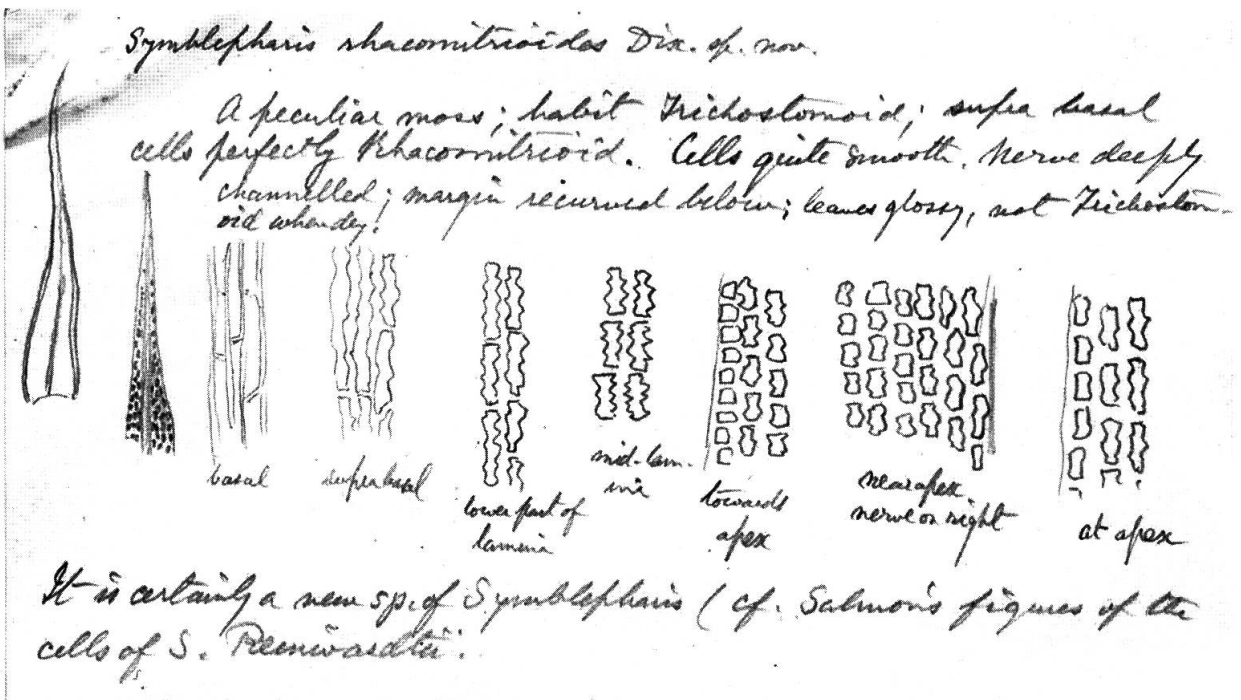 Symblepharis rhacomitrioides Dix. sp. nov.
A peculiar moss; habit Trichostomoid; supra basal
cells perfectly Rhacomitrioid. Cells quite smooth. Nerve deeply
channelled; margin recurved below; leaves glossy, not Trichostom-
oid when dry!
basal
suprabasal
lower part of
lamina
mid-lam-
ina
towards
apex
near apex
nerve on right
at apex
It is certainly a new sp. of Symblepharis (cf. Salmon's figures of the
cells of S. Reinwardtii.